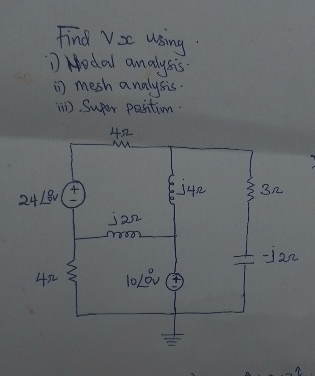 Find Vx using.
i) Nodal analysis.
ii) mesh analysis.
iii) Super position.
4Ω
24∠0v
j4Ω
3Ω
j2Ω
-j2Ω
4Ω
10∠0°v